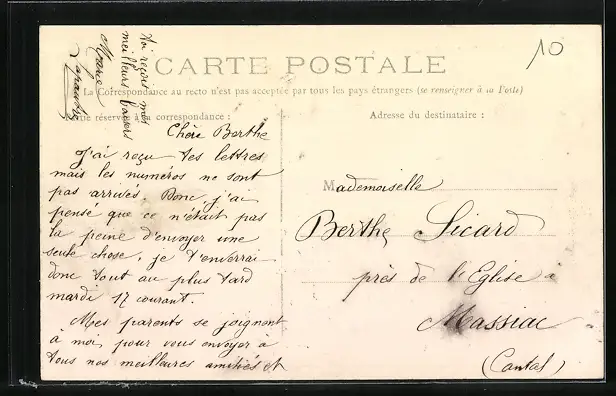 10
CARTE POSTALE
La Correspondance au recto n'est pas acceptée par tous les pays étrangers (se renseigner à la Poste)
réservée à la correspondance :
Adresse du destinataire :
Chère Berthe
J'ai reçu tes lettres
mais les numeros ne sont
pas arrivés. Donc j'ai
pensé que ce n'était pas
la peine d'envoyer une
seule chose, je t'enverrai
donc tout au plus tard
mardi 17 courant.
Mes parents se joignent
à moi pour vous envoyer à
tous nos meilleures amitiés et
toi reçois mes
meilleurs baisers
Marie
Mademoiselle
Berthe Sicard
près de l'Eglise à
Massiac
(Cantal)